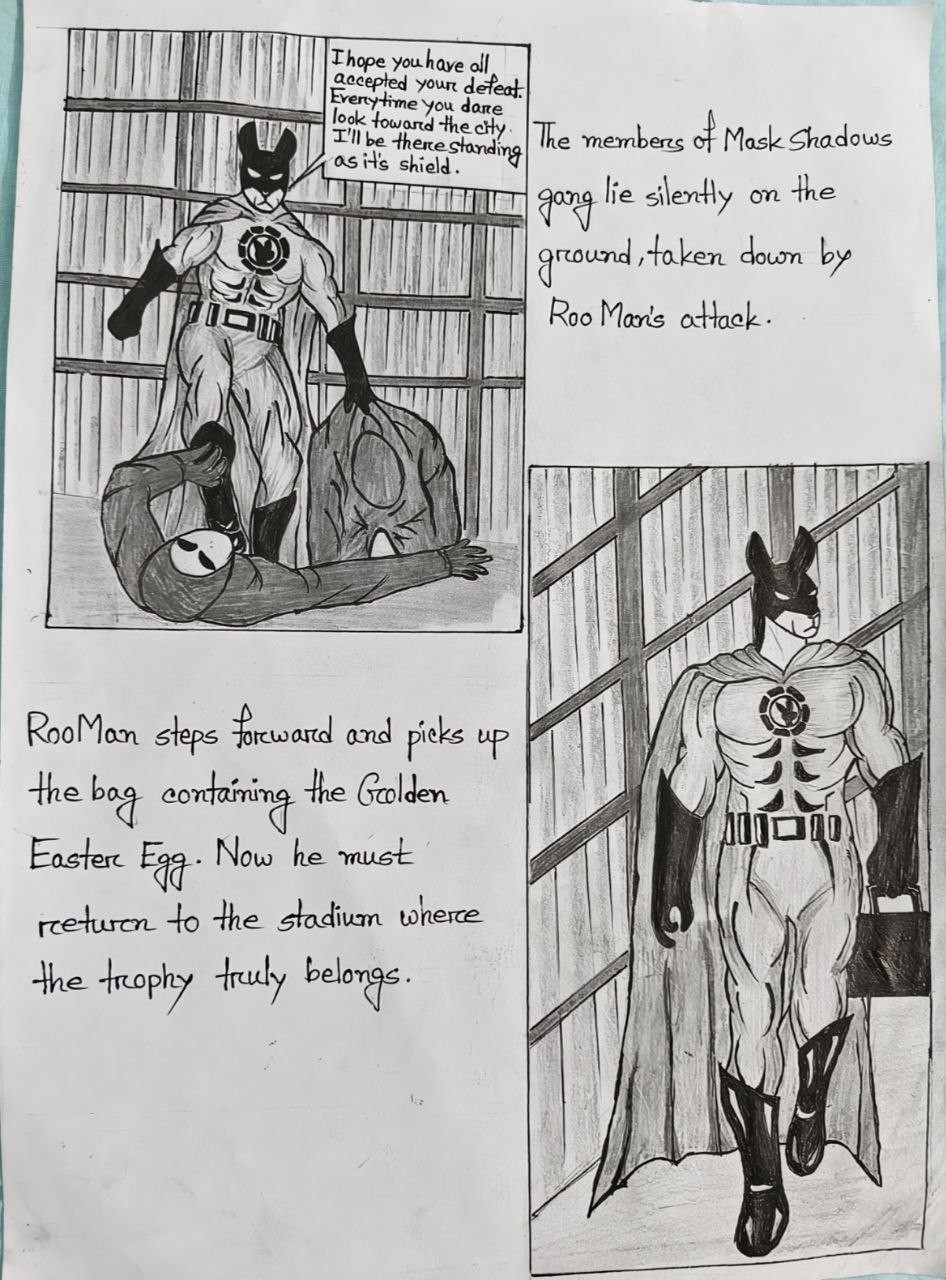 I hope you have all
accepted your defeat.
Everytime you dare
look toward the city.
I'll be there standing
as it's shield.
The members of Mask Shadows
gang lie silently on the
ground, taken down by
Roo Man's attack.
RooMan steps forward and picks up
the bag containing the Golden
Easter Egg. Now he must
return to the stadium where
the trophy truly belongs.